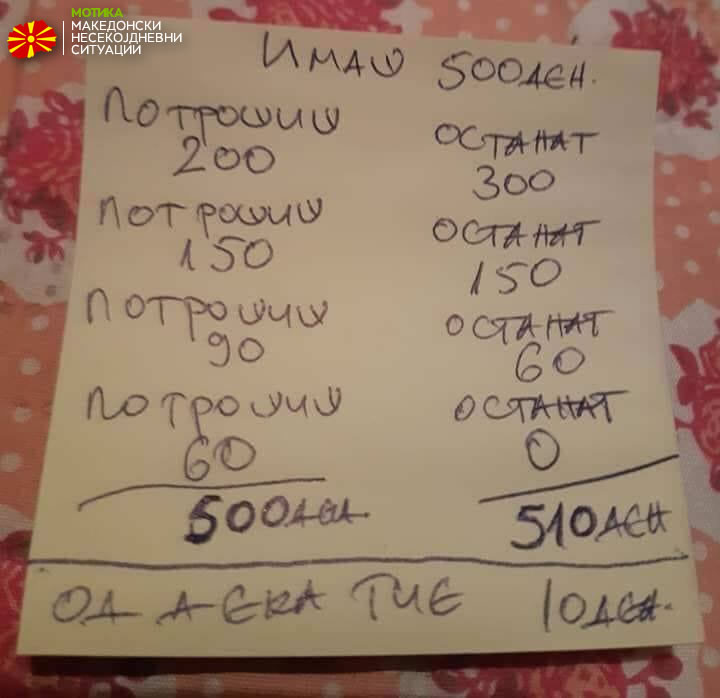 МОТИКА
МАКЕДОНСКИ
НЕСЕКОЈДНЕВНИ
СИТУАЦИИ
ИМАШ 500 ДЕН.
ПОТРОШИШ ОСТАНАТ
200 300
ПОТРОШИШ ОСТАНАТ
150 150
ПОТРОШИШ ОСТАНАТ
90 60
ПОТРОШИШ ОСТАНАТ
60 0
500 ДЕН 510 ДЕН
ОД ДЕКА ТИЕ 10 ДЕН.